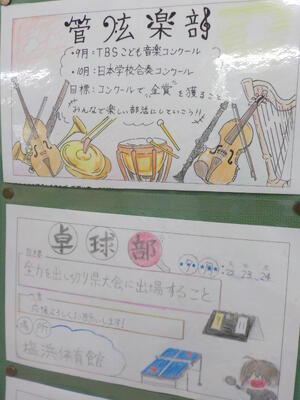 管弦楽部
・9月：TBSこども音楽コンクール
・10月：日本学校合奏コンクール
目標：コンクールで"金賞"を獲ること
みんなで楽しい部活にしていこう!!
卓球部
目標
全力を出し切り県大会に出場すること
22 23 24
応援よろしくお願いします!
場所
塩浜体育館